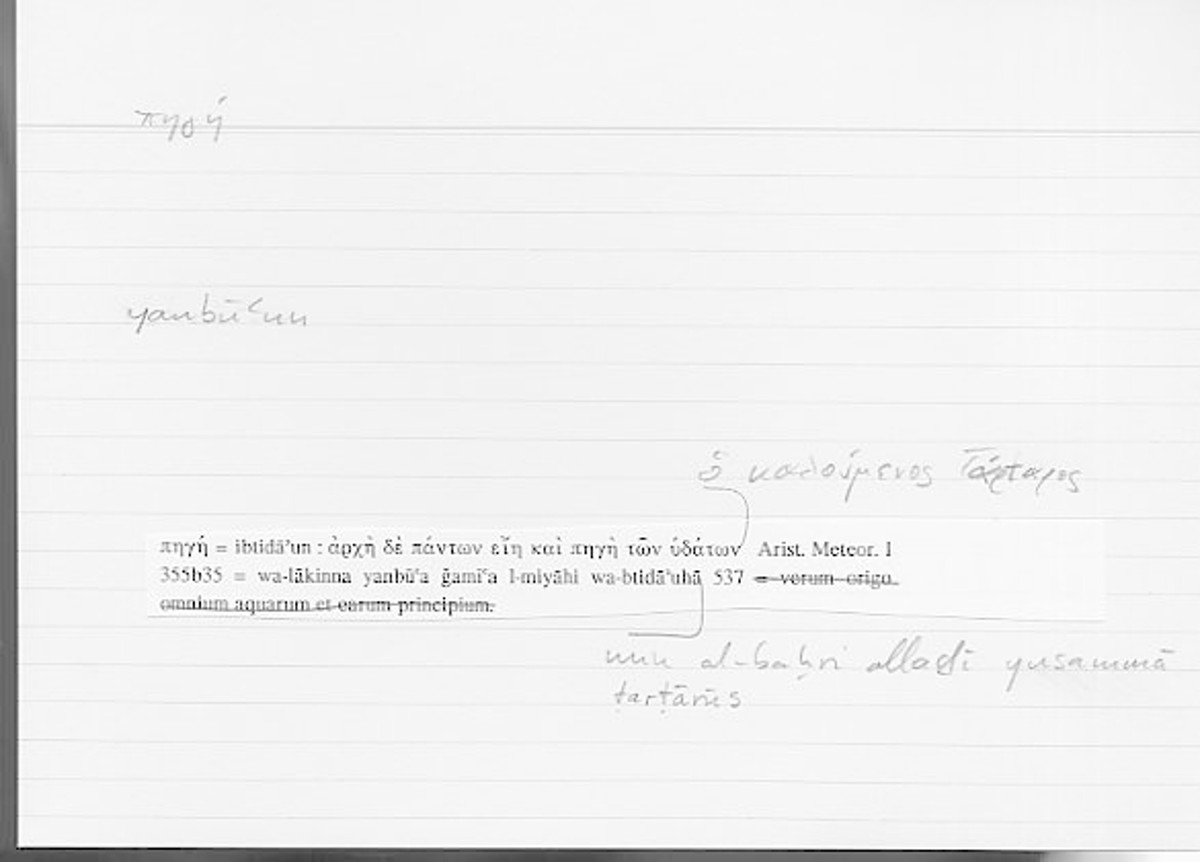 πηγή
yanbūʿun
ὁ καλούμενος Τάρταρος
πηγή = ibtidāʾun : ἀρχὴ δὲ πάντων εἴη καὶ πηγὴ τῶν ὑδάτων Arist. Meteor. I
355b35 = wa-lākinna yanbūʿa ǧamīʿa l-miyāhi wa-btidāʾuhā 537 = verum origo
omnium aquarum et earum principium.
min al-baḥri allaḏī yusammā
ṭarṭārūs